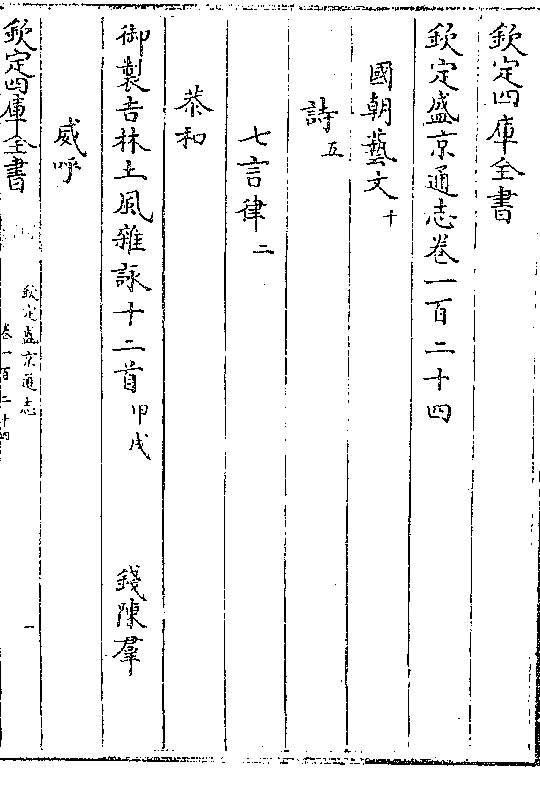 欽定四庫全書
欽定盛京通志卷一百二十四
國朝藝文十
詩五
七言律二
恭和
御製吉林土風雜詠十二首甲戌 錢陳羣
威呼
欽定四庫全書
欽定盛京通志
卷一百二十四
一